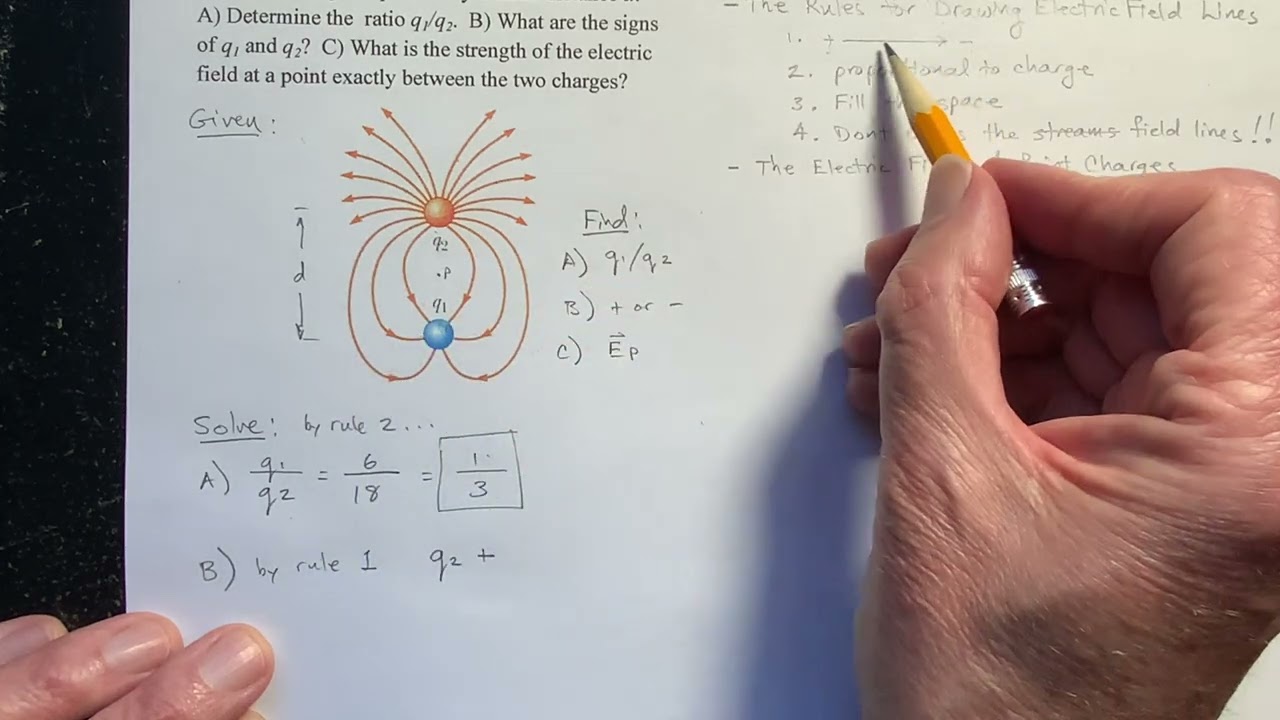 A) Determine the ratio q1/q2. B) What are the signs
of q1 and q2? C) What is the strength of the electric
field at a point exactly between the two charges?
Given:
d
q2
.P
q1
Find:
A) q1/q2
B) + or -
C) E⃗p
Solve: by rule 2...
A) q1/q2 = 6/18 = 1/3
B) by rule 1 q2 +
- The Rules for Drawing Electric Field Lines
1. + → -
2. proportional to charge
3. Fill space
4. Dont the streams field lines!!
- The Electric Charges